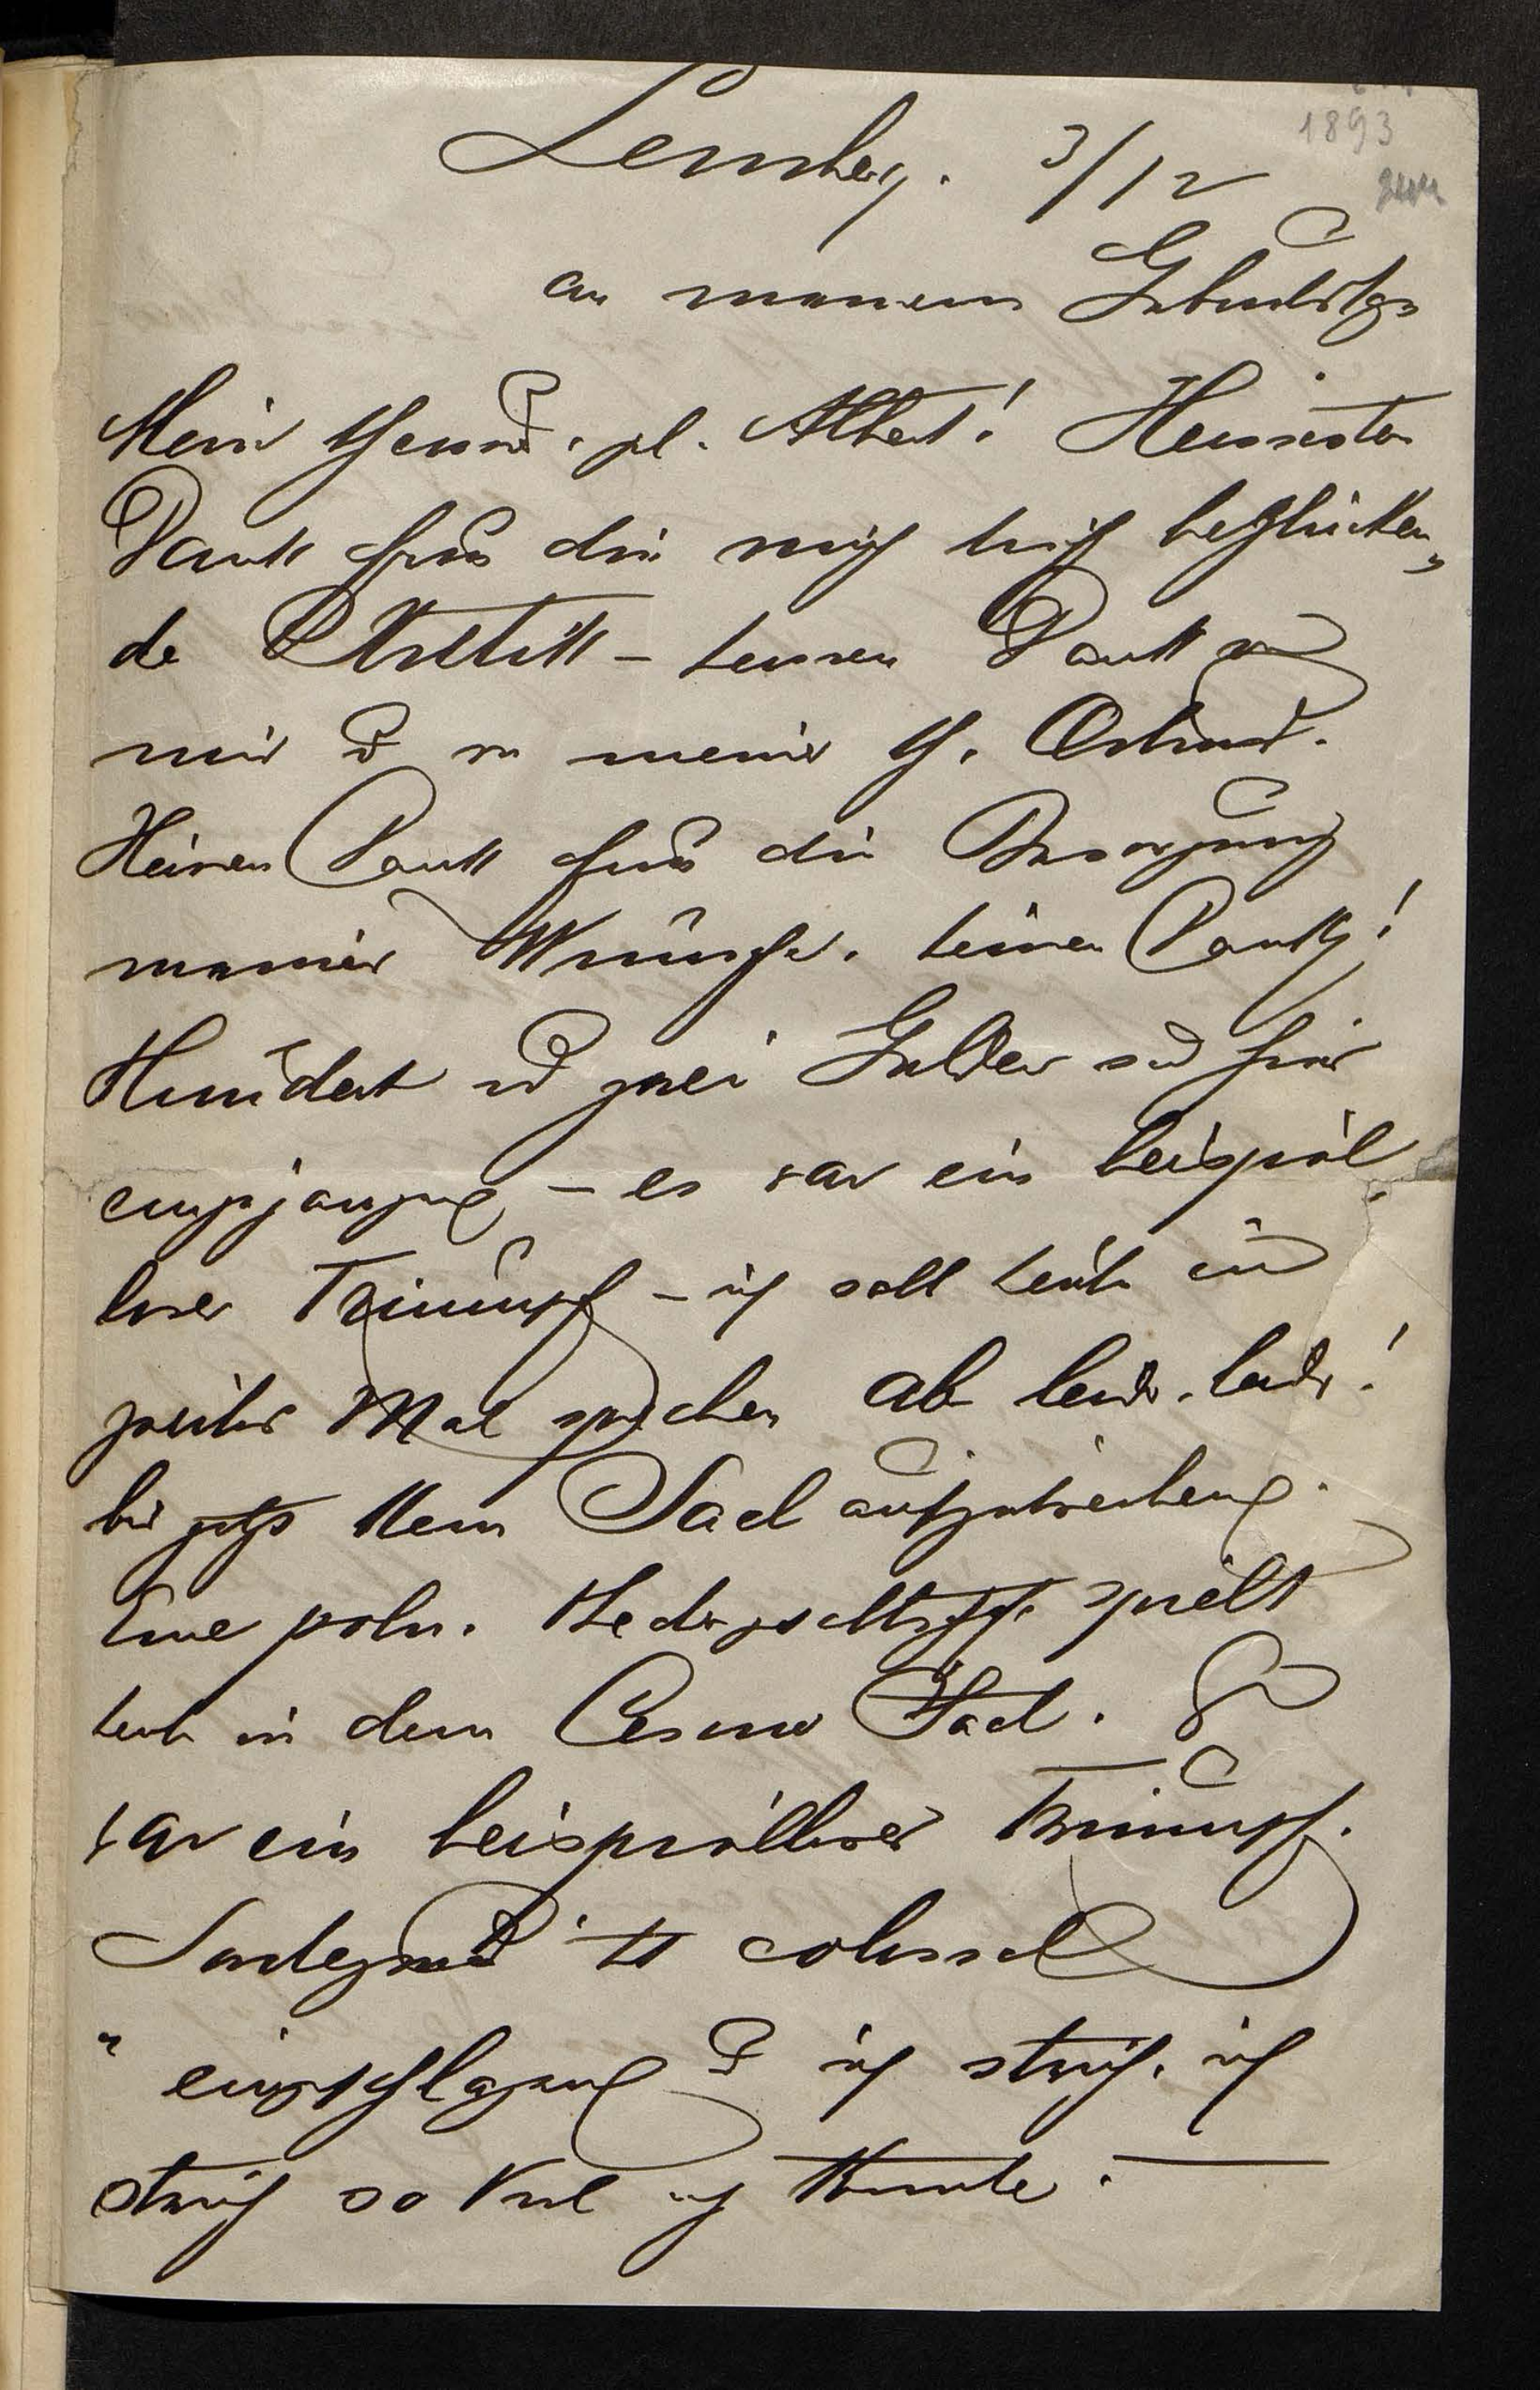 Lemberg. 3/12
1893
an meinem Geburtstage
Mein theurer, gl. Albert! Heissesten
Dank für die mich tief beglücken,
de Kritik – heissen Dank von
mir u von meiner th.
Heissen Dank für die Besorgung
meiner Wünsche. heissen Dank!
Hundert u zwei Gulden sind hier
eingegangen – es war ein beispiel
loser Triumpf – ich soll heute ein
zweites Mal sprechen aber leider. leider!
bis jetzt kein Saal aufzutreiben.
Eine poln. spielt
heute in dem Casino Saal. Es
war ein beispielloser Triumpf.
ist colossal
eingeschlagen u ich strich. ich
strich so viel ich konnte. —